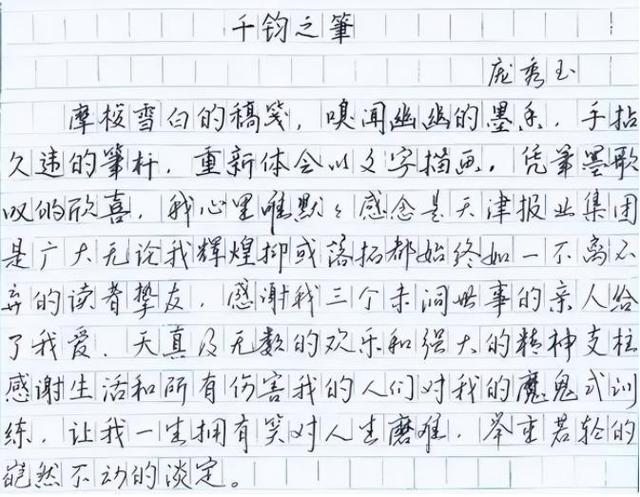 千钧之筆
庞秀玉
摩梭雪白的稿笺，嗅闻幽幽的墨香，手拈
久违的筆杆，重新体会以文字描画，凭筆墨歌
叹的欣喜，我心里唯默々感念是天津报业集团
是广大无论我辉煌抑或落拓都始终如一不离不
弃的读者挚友，感谢我三个未谙世事的亲人给
了我爱、天真及无数的欢乐和强大的精神支柱
感谢生活和所有伤害我的人们对我的魔鬼式训
练，让我一生拥有笑对人生磨难，举重若轻的
岿然不动的淡定。